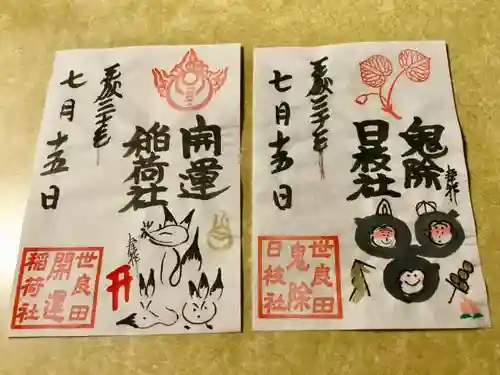 開運
稲荷社
平成三十年
七月十五日
世良田
開運
稲荷社
鬼除
日枝社
平成三十年
七月十五日
世良田
鬼除
日枝社